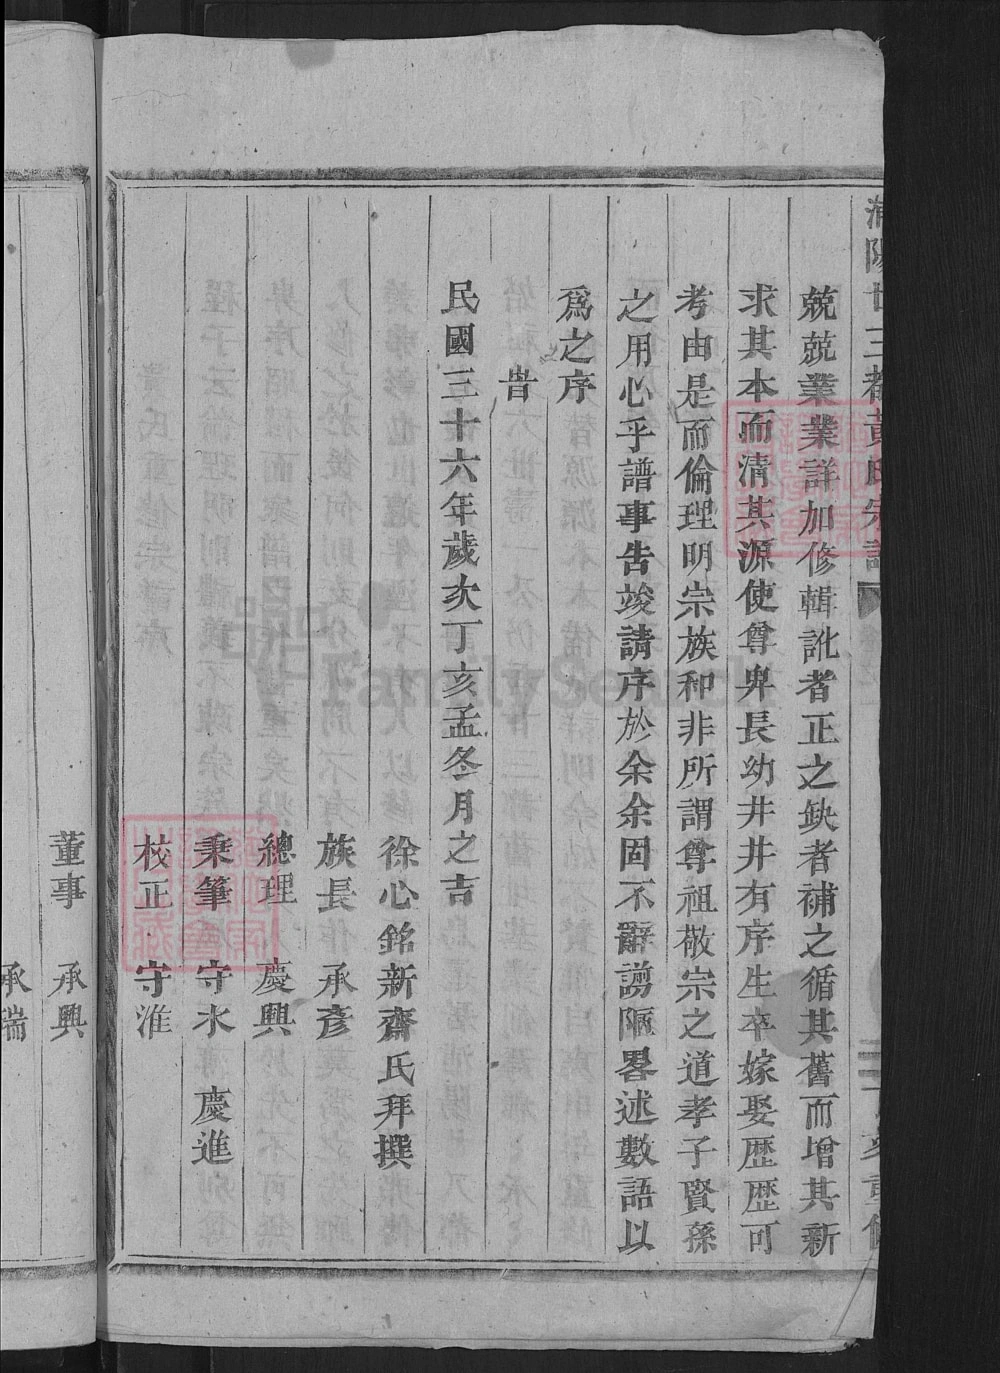 浦陽廿三都黃氏宗譜 丁亥重修
兢兢業業詳加修輯訛者正之缺者補之循其舊而增其新
求其本而清其源使尊卑長幼井井有序生卒嫁娶歷歷可
考由是而倫理明宗族和非所謂尊祖敬宗之道孝子賢孫
之用心乎譜事告竣請序於余余固不辭謭陋畧述數語以
爲之序
旹
民國三十六年歲次丁亥孟冬月之吉
徐心銘新齋氏拜撰
族長 承彥
總理 慶興
秉筆 守水 慶進
校正 守淮
董事 承興
承瑞
FamilySearch